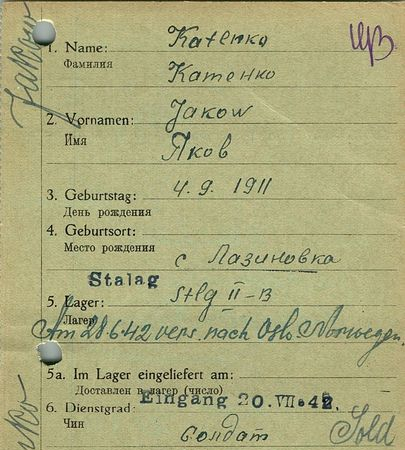 Katenko
1. Name:
Фамилия
Катенко
2. Vornamen: Jakow
Имя
Яков
3. Geburtstag: 4.9. 1911
День рождения
4. Geburtsort:
Место рождения
с Лазиновка
Stalag
5. Lager: Stlg II-B
Лагерь
Am 28.6.42 vers. nach Oslo Norwegen.
5a. Im Lager eingeliefert am:
Доставлен в лагер (число)
Eingang 20. VII. 42.
6. Dienstgrad:
Чин
солдат Sold
Jakow